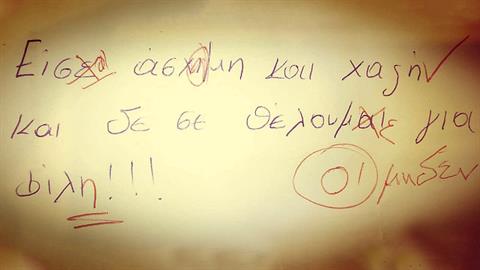 Είσαι άσχημη και χαζή
και δε σε θέλουμε για
φίλη!!! 0! μηδεν